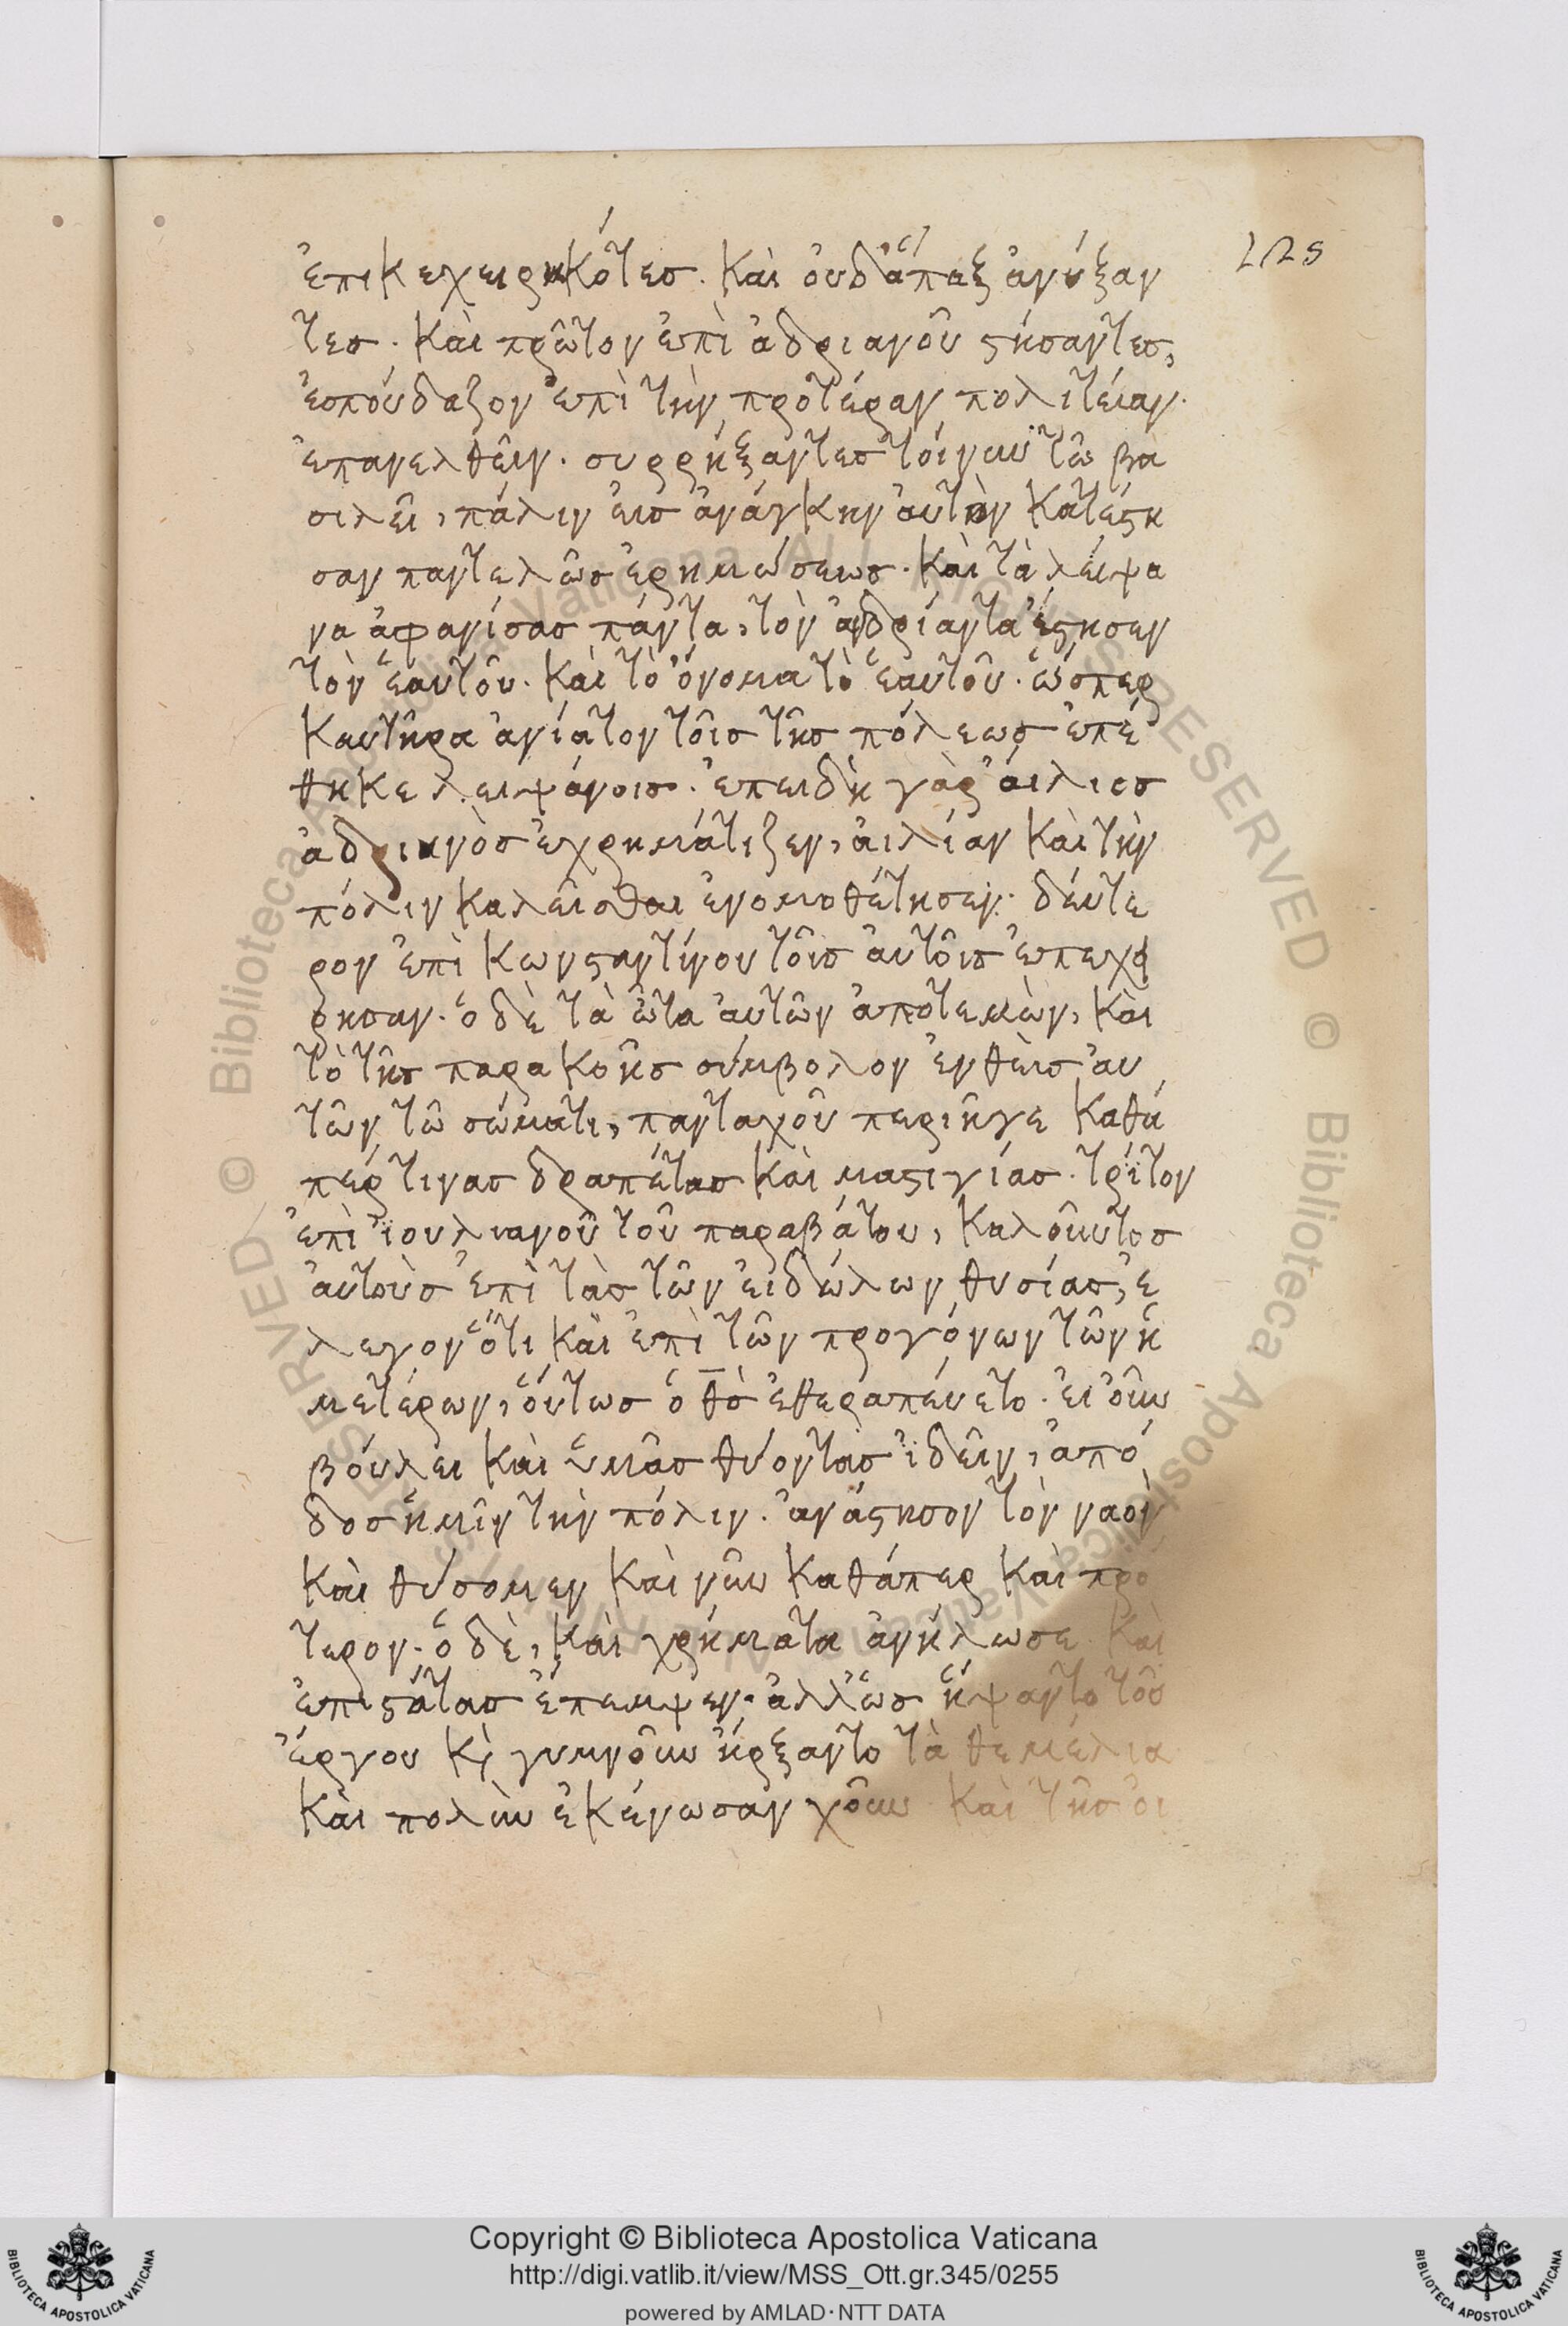 ἐπικεχειρηκότες. καὶ οὐδάπαξ ἀνύξαν
τες. καὶ πρῶτον ἐπὶ ἀδριανοῦ στήσαντες,
ἐσπούδαζον ἐπὶ τὴν προτέραν πολιτείαν.
ἐπανελθεῖν. συρρήξαντες τοίνυν τῶ βα
σιλεῖ, πάλιν εἰς ἀνάγκην αὐτὴν κατέστη
σαν παντελῶς ἐρημώσεως. καὶ τὰ λείψα
να ἀφανίσας πάντα, τὸν ἀνδριάντα ἔστησεν
τὸν ἑαυτοῦ. καὶ τὸ ὄνομα τὸ ἑαυτοῦ. ὥσπερ
καυτῆρα ἀνίατον τοῖς τῆς πόλεως ἐπέ
θηκε λειψάνοις. ἐπειδὴ γὰρ αἴλιος
ἀδριανὸς ἐχρημάτιζεν, αἰλίαν καὶ τὴν
πόλιν καλεῖσθαι ἐνομοθέτησεν. δεύτε
ρον ἐπὶ κωνσταντίνου τοῖς αὐτοῖς ἐπεχεί
ρησαν. ὁ δὲ τὰ ὦτα αὐτῶν ἀποτεμὼν, καὶ
τὸ τῆς παρακοῆς σύμβολον ἐνθεὶς αὐ
τῶν τῶ σώματι, πανταχοῦ περιῆγε καθά
περ τινας δραπέτας καὶ μαστιγίας. τρίτον
ἐπὶ ἰουλιανοῦ τοῦ παραβάτου, καλοῦντος
αὐτοὺς ἐπὶ τὰς τῶν εἰδώλων θυσίας, ἔ
λεγον ὅτι καὶ ἐπὶ τῶν προγόνων τῶν ἡ
μετέρων, οὕτως ὁ θς ἐθεραπεύετο. εἰ οὖν
βούλει καὶ ὑμᾶς θύοντας ἰδεῖν, ἀπό
δος ἡμῖν τὴν πόλιν. ἀνάστησον τὸν ναὸν
καὶ θύσομεν καὶ νῦν καθάπερ καὶ πρό
τερον. ὁ δὲ, καὶ χρήματα ἀνήλωσε καὶ
ἐπιστάτας ἔπεμψεν. ἀλλ' ὡς ἥψαντο τοῦ
ἔργου κὶ γυμνοῦν ἤρξαντο τὰ θεμέλια
καὶ πολὺν ἐκένωσαν χοῦν καὶ τῆς οἰ
Copyright © Biblioteca Apostolica Vaticana
http://digi.vatlib.it/view/MSS_Ott.gr.345/0255
powered by AMLAD·NTT DATA